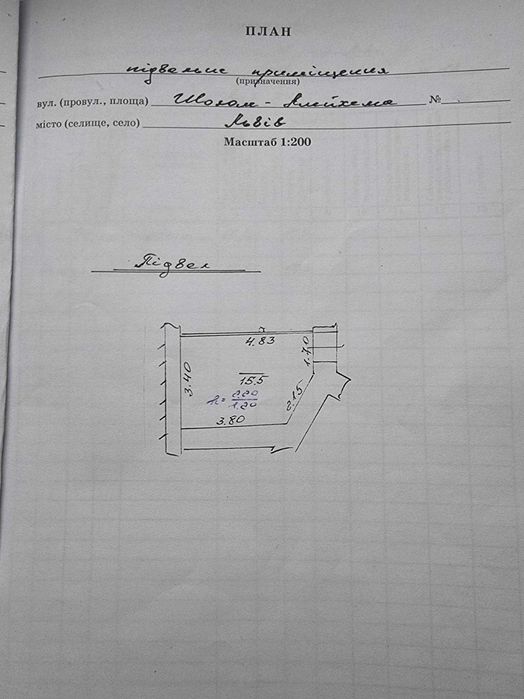 ПЛАН
підвальне приміщення
(призначення)
вул. (провул., площа) Шолом-Алейхема №
місто (селище, село) Львів
Масштаб 1:200
Підвал
4.83
1.70
3.40
15.5
h= 2.20
1.20
2.15
3.80